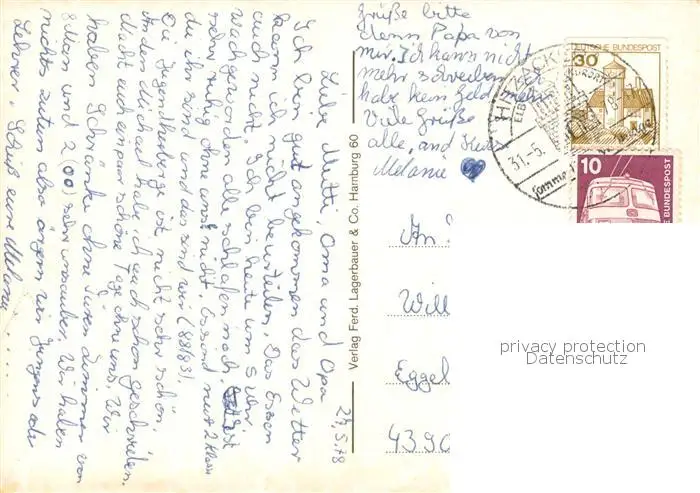 29.5.78
Liebe Mutti, Oma und Opa
Ich bin gut angekommen das Wetter
kann ich nicht beurteilen. Das Essen
auch nicht. Ich bin heute um 5 Uhr
wach geworden alle schlafen noch. ist
sehr ruhig ohne uns nicht. Es sind nur 2 Klassen
die hir sind und das sind wir (88/83).
Die Jugendherberge ist nicht sehr schön.
An den Michael habe ich auch schon geschrieben.
Macht euch ein paar schöne Tage ohne uns. Wir
haben Schränke ohne Türen Zimmer von
8 Mann und 2 (00) sehr unsauber. Wir haben
nichts zutun also ärgern wir Jungens oder
Lehrer. Schöß eure Melanie.....
Grüße bitte
denn Papa von
mir. Ich kann nicht
mehr schreiben
habe kein Geld mehr
Viele Grüße
alle, and
Melanie
Verlag Ferd. Lagerbauer & Co. Hamburg 60
DEUTSCHE BUNDESPOST
30
10
BUNDESPOST
HITZACKER
31.-5.
An
Will
Eggel
4390
privacy protection
Datenschutz